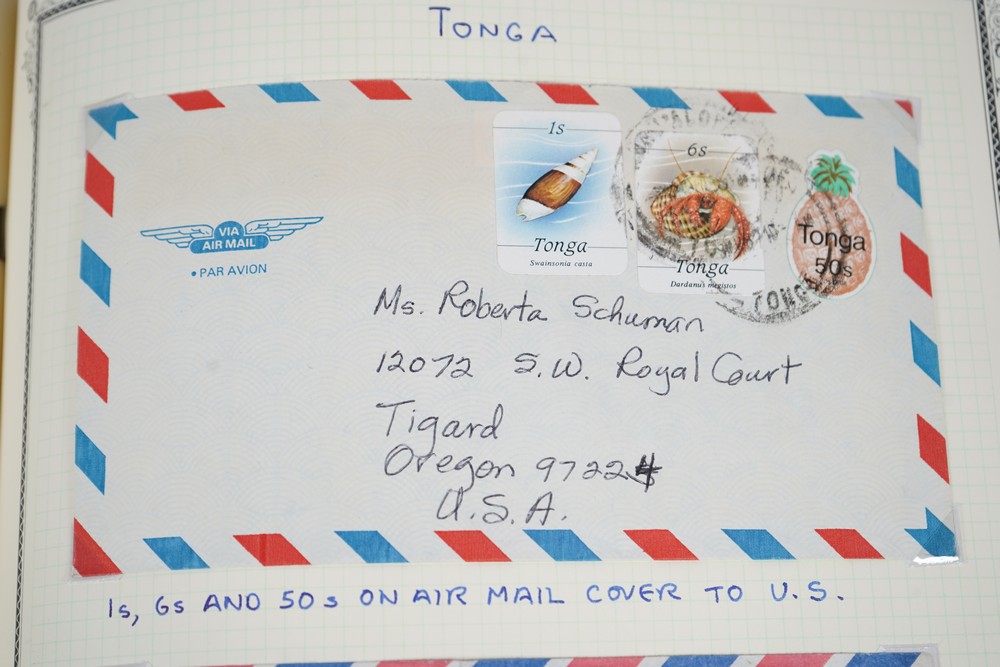 TONGA
1s
Tonga
Swainsonia casta
6s
Tonga
Dardanus megistos
Tonga
50s
VIA
AIR MAIL
• PAR AVION
Ms. Roberta Schuman
12072 S.W. Royal Court
Tigard
Oregon 97224
U.S.A.
1s, 6s AND 50s ON AIR MAIL COVER TO U.S.